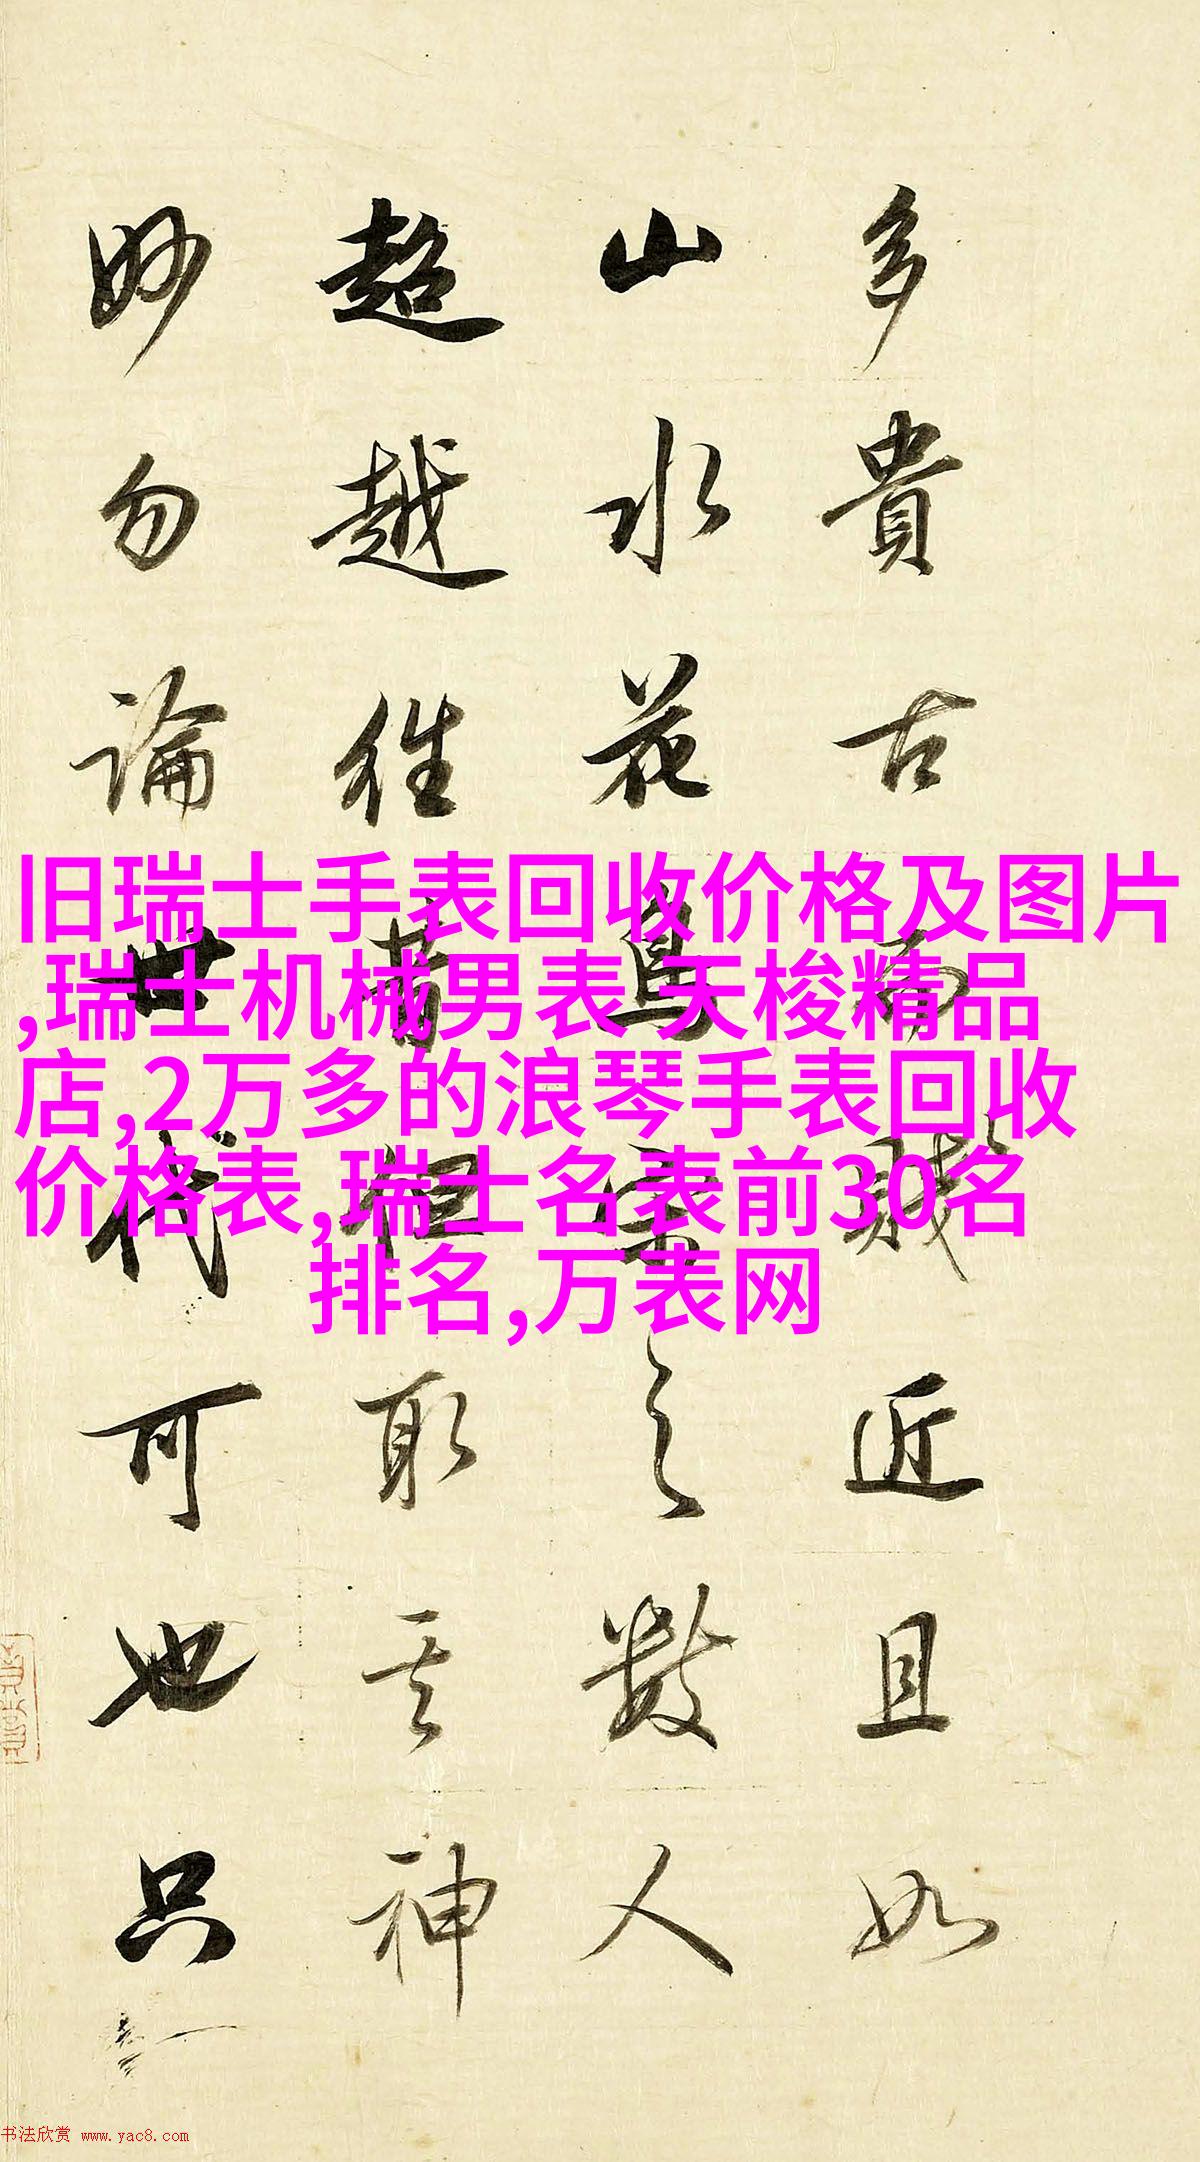 多貴古而賤近且如
山水花鳥宋之數人
超越往昔但取其神
妙勿論世代可也只
旧瑞士手表回收价格及图片
,瑞士机械男表 天梭精品
店,2万多的浪琴手表回收
价格表,瑞士名表前30名
排名,万表网
书法欣赏 www.yac8.com